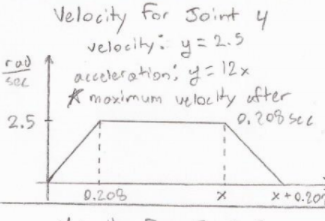 Velocity for Joint 4
velocity: y = 2.5
rad
sec
acceleration: y = 12x
* maximum velocity after
0.208 sec
2.5
0.208
x
x+0.20